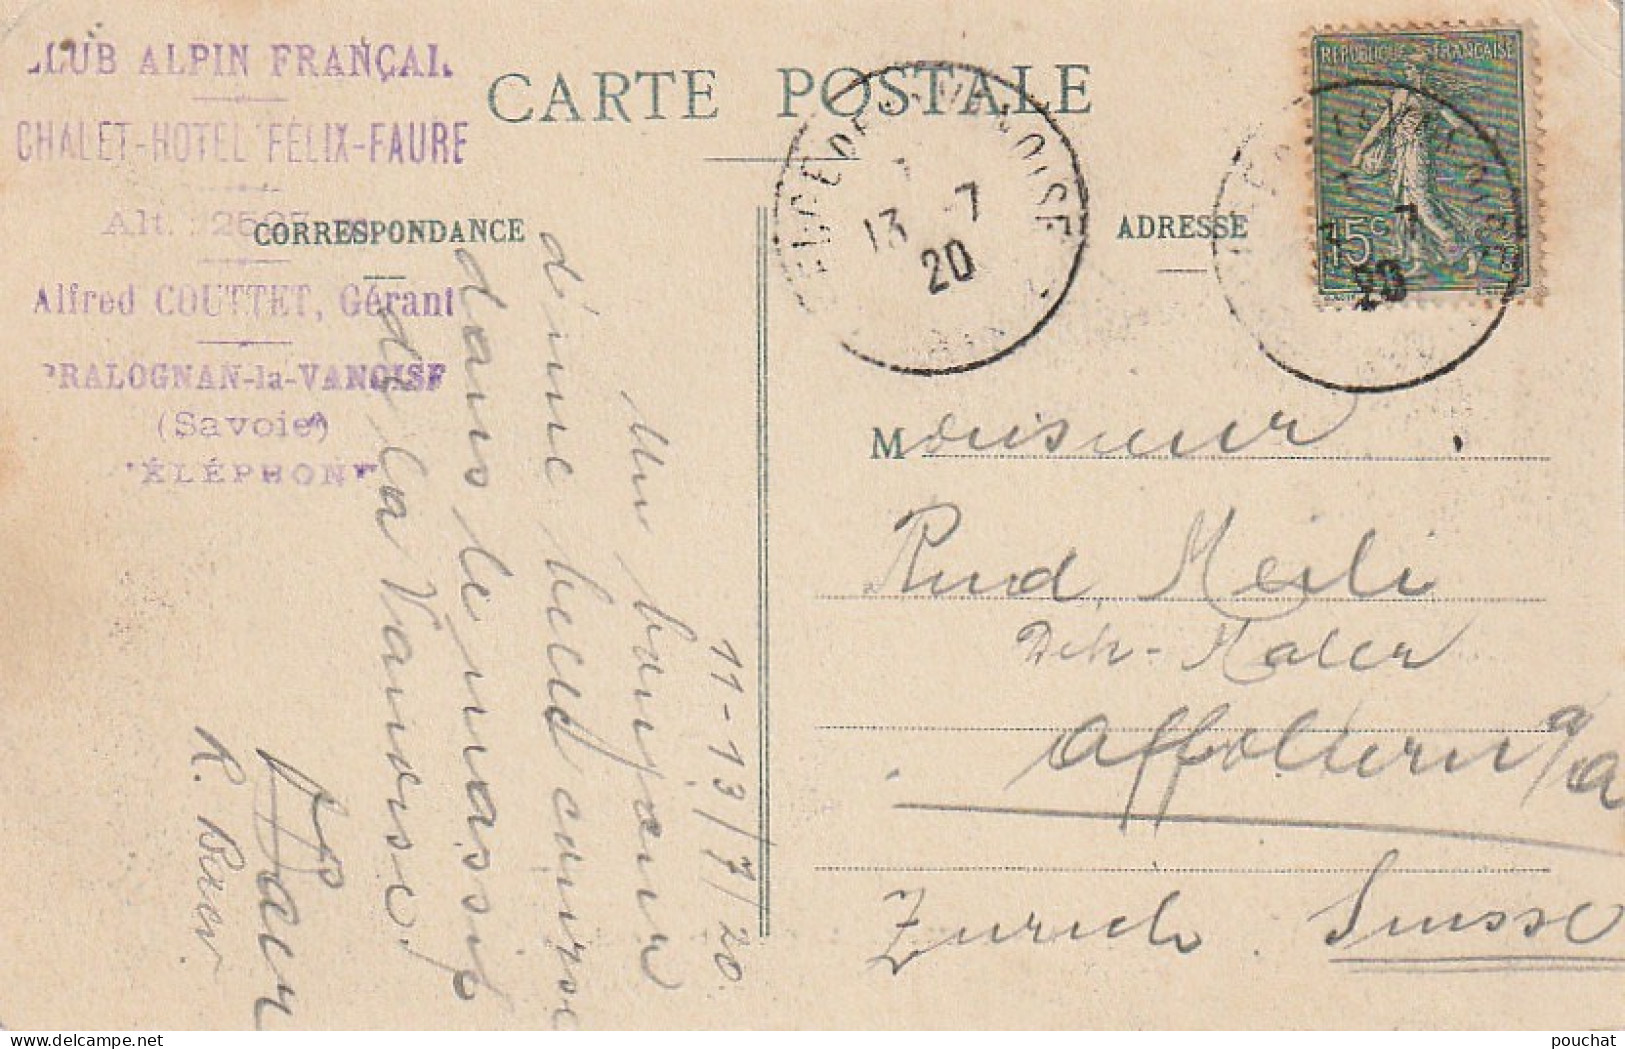 CLUB ALPIN FRANÇAI
CHALET-HOTEL FÉLIX-FAURE
Alt. 2507 m
Alfred COUTTET, Gérant
PRALOGNAN-la-VANOISE
(Savoie)
TÉLÉPHONE
CARTE POSTALE
CORRESPONDANCE
ADRESSE
RÉPUBLIQUE FRANÇAISE
15c
13 -7
20
7
20
11-13/7/20.
Un bonjour
d'une belle course
dans le massif
de la Vanoise.
Monsieur
Rud. Meili
Maler
Affoltern a/a
Zürich. Suisse
pouchat